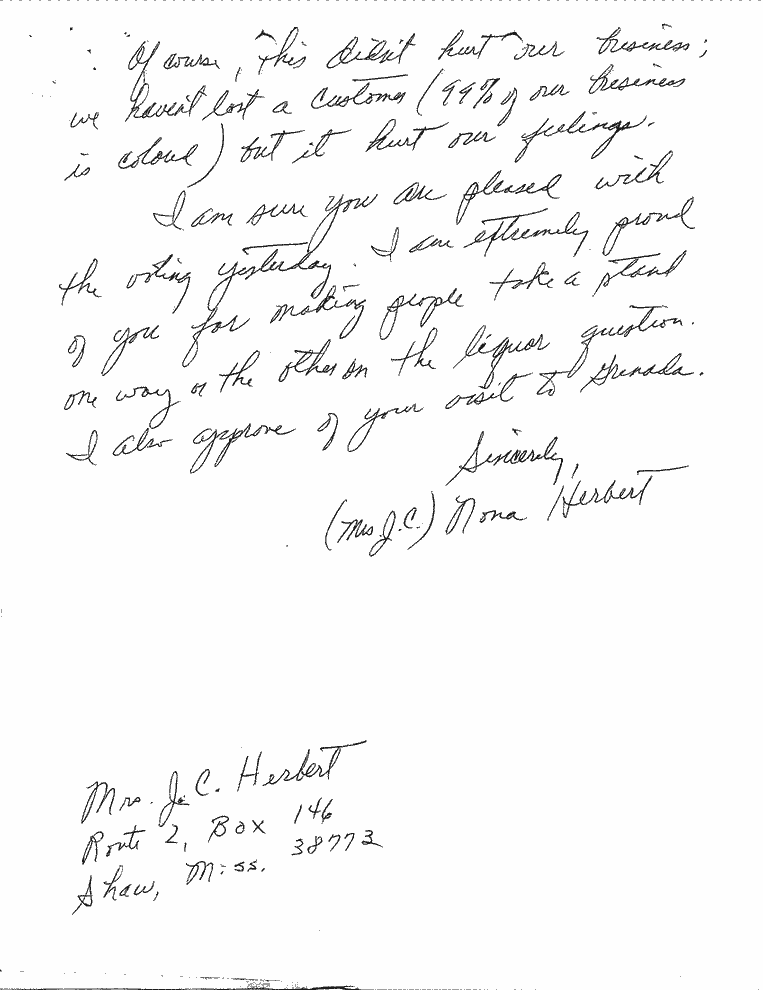 Of course, this didn't hurt our business;
we haven't lost a customer (99% of our business
is colored) but it hurt our feelings.
I am sure you are pleased with
the voting yesterday. I am extremely proud
of you for making people take a stand
one way or the other on the liquor question.
I also approve of your visit to Grenada.
Sincerely,
(Mrs. J.C.) Nona Herbert
Mrs. J. C. Herbert
Route 2, Box 146
Shaw, Miss. 38773